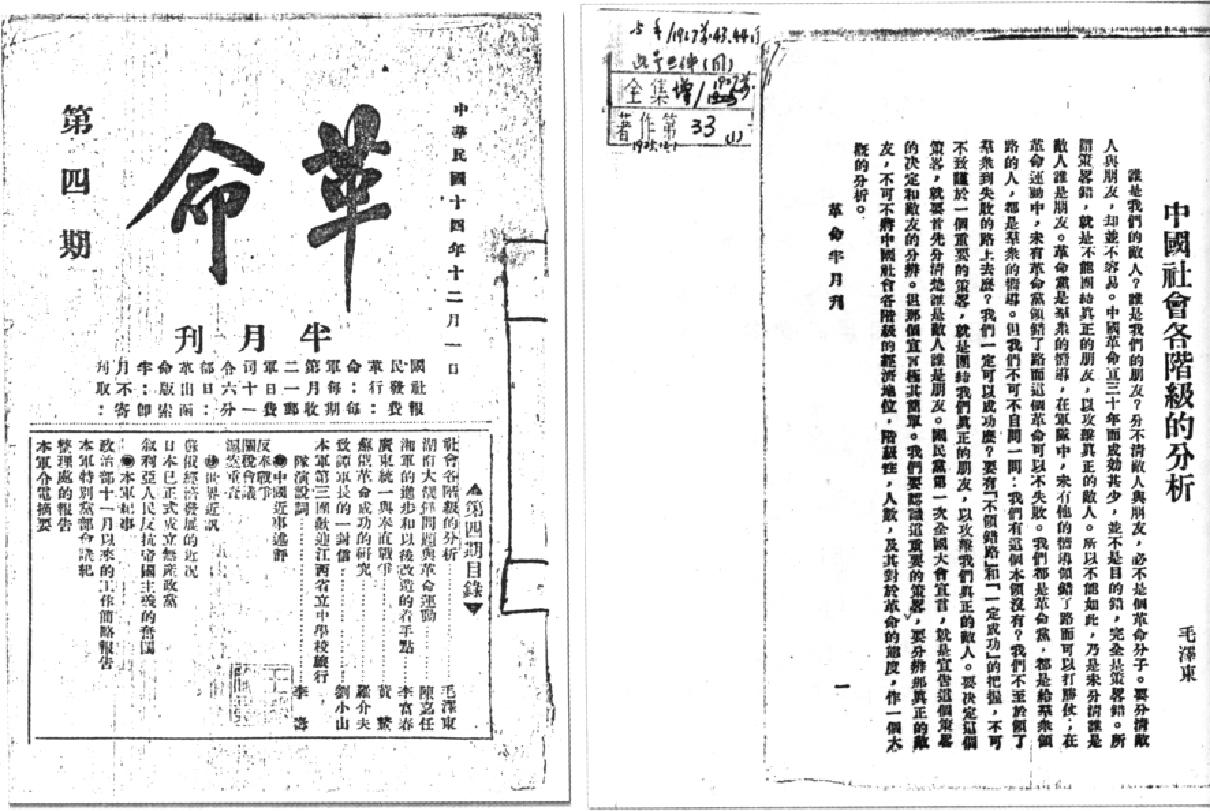 中華民國十四年十二月一日
革命
第四期
半月刊
國民革命軍第二軍司令部革命半月刊
社發行：每月一日十六日出版：不取
報費：每期收郵費一分：函索即寄：
▲第四期目錄▼
社會各階級的分析……毛澤東
湖南大漢伴問題與革命運動……陳嘉任
湘軍的進步和以後改造的着手點……李富春
廣東統一與奉直戰爭……黃鰲
蘇俄革命成功的研究……羅介夫
致譚軍長的一封信……劉小山
本軍第三團歡迎江西省立中學校旅行
隊演說詞……李濤
◉中國近事述評
反奉戰爭
關稅會議
滬案重查
◉世界近訊
蘇俄經濟發展的近況
日本已正式成立無產政黨
叙利亞人民反抗帝國主義的奮鬥
◉本軍紀事
政治部十一月以來的工作簡略報告
本軍特別黨部會議紀
整理處的報告
本軍令電摘要
全集增/
著作第33(1)
1925.12.1
中國社會各階級的分析
毛澤東
誰是我們的敵人？誰是我們的朋友？分不清敵人與朋友，必不是個革命分子。要分清敵
人與朋友，却並不容易。中國革命亘三十年而成効甚少，並不是目的錯，完全是策畧錯。所
謂策畧錯，就是不能團結真正的朋友，以攻擊真正的敵人。所以不能如此，乃是未分清誰是
敵人誰是朋友。革命黨是羣衆的嚮導，在軍隊中，未有他的嚮導領錯了路而可以打勝仗；在
革命運動中，未有革命黨領錯了路而這個革命可以不失敗。我們都是革命黨，都是給羣衆領
路的人，都是羣衆的嚮導。但我們不可不自問一問：我們有這個本領沒有？我們不至於領了
羣衆到失敗的路上去麽？我們一定可以成功麽？要有「不領錯路」和「一定成功」的把握，不可
不致謹於一個重要的策畧，就是團結我們真正的朋友，以攻擊我們真正的敵人。要決定這個
策畧，就要首先分清楚誰是敵人誰是朋友。國民黨第一次全國大會宣言，就是宣告這個策畧
的決定和敵友的分辨。但那個宣言極其簡單。我們要認識這重要的策畧，要分辨那真正的敵
友，不可不將中國社會各階級的經濟地位，階級性，人數，及其對於革命的態度，作一個大
概的分析。
革命半月刊
一